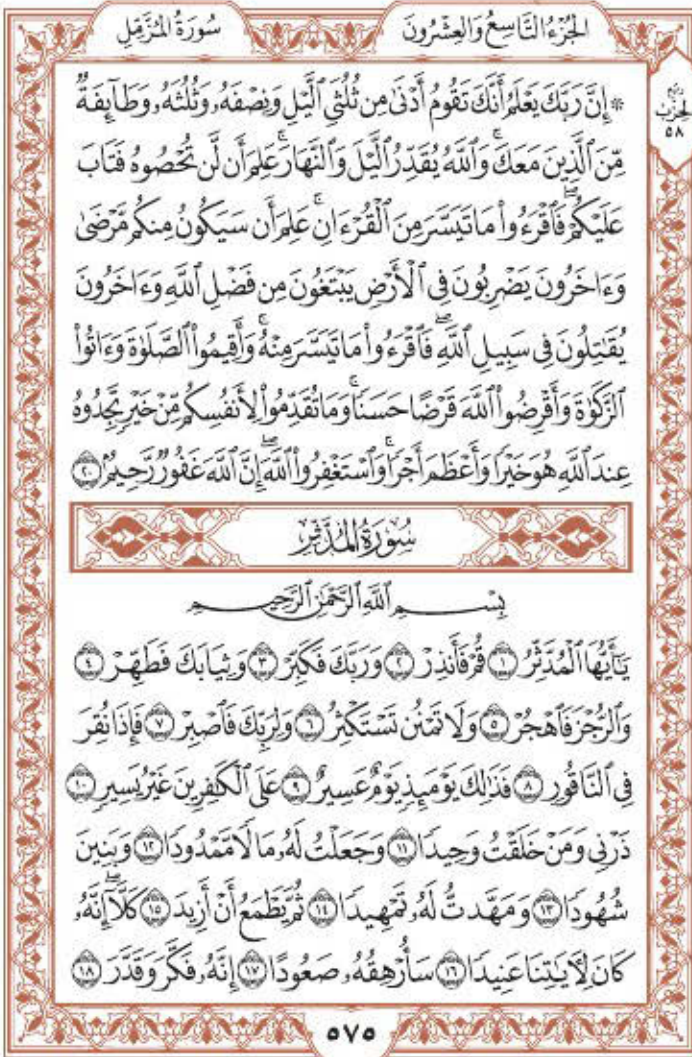 الجُزْءُ التَّاسِعُ وَالعِشْرُونَ
سُورَةُ المُزَّمِّل
رُبْع
الحِزْب
٥٨
۞ إِنَّ رَبَّكَ يَعْلَمُ أَنَّكَ تَقُومُ أَدْنَىٰ مِن ثُلُثَيِ ٱلَّيْلِ وَنِصْفَهُۥ وَثُلُثَهُۥ وَطَآئِفَةٌ
مِّنَ ٱلَّذِينَ مَعَكَۚ وَٱللَّهُ يُقَدِّرُ ٱلَّيْلَ وَٱلنَّهَارَۚ عَلِمَ أَن لَّن تُحْصُوهُ فَتَابَ
عَلَيْكُمْۖ فَٱقْرَءُوا۟ مَا تَيَسَّرَ مِنَ ٱلْقُرْءَانِۚ عَلِمَ أَن سَيَكُونُ مِنكُم مَّرْضَىٰ
وَءَاخَرُونَ يَضْرِبُونَ فِى ٱلْأَرْضِ يَبْتَغُونَ مِن فَضْلِ ٱللَّهِ وَءَاخَرُونَ
يُقَٰتِلُونَ فِى سَبِيلِ ٱللَّهِۖ فَٱقْرَءُوا۟ مَا تَيَسَّرَ مِنْهُۚ وَأَقِيمُوا۟ ٱلصَّلَوٰةَ وَءَاتُوا۟
ٱلزَّكَوٰةَ وَأَقْرِضُوا۟ ٱللَّهَ قَرْضًا حَسَنًاۚ وَمَا تُقَدِّمُوا۟ لِأَنفُسِكُم مِّنْ خَيْرٍ تَجِدُوهُ
عِندَ ٱللَّهِ هُوَ خَيْرًا وَأَعْظَمَ أَجْرًاۚ وَٱسْتَغْفِرُوا۟ ٱللَّهَۖ إِنَّ ٱللَّهَ غَفُورٌ رَّحِيمٌۢ ٢٠
سُورَةُ المُدَّثِّرِ
بِسْمِ ٱللَّهِ ٱلرَّحْمَٰنِ ٱلرَّحِيمِ
يَٰٓأَيُّهَا ٱلْمُدَّثِّرُ ١ قُمْ فَأَنذِرْ ٢ وَرَبَّكَ فَكَبِّرْ ٣ وَثِيَابَكَ فَطَهِّرْ ٤
وَٱلرُّجْزَ فَٱهْجُرْ ٥ وَلَا تَمْنُن تَسْتَكْثِرُ ٦ وَلِرَبِّكَ فَٱصْبِرْ ٧ فَإِذَا نُقِرَ
فِى ٱلنَّاقُورِ ٨ فَذَٰلِكَ يَوْمَئِذٍ يَوْمٌ عَسِيرٌ ٩ عَلَى ٱلْكَٰفِرِينَ غَيْرُ يَسِيرٍ ١٠
ذَرْنِى وَمَنْ خَلَقْتُ وَحِيدًا ١١ وَجَعَلْتُ لَهُۥ مَالًا مَّمْدُودًا ١٢ وَبَنِينَ
شُهُودًا ١٣ وَمَهَّدتُّ لَهُۥ تَمْهِيدًا ١٤ ثُمَّ يَطْمَعُ أَنْ أَزِيدَ ١٥ كَلَّآۖ إِنَّهُۥ
كَانَ لِءَايَٰتِنَا عَنِيدًا ١٦ سَأُرْهِقُهُۥ صَعُودًا ١٧ إِنَّهُۥ فَكَّرَ وَقَدَّرَ ١٨
٥٧٥